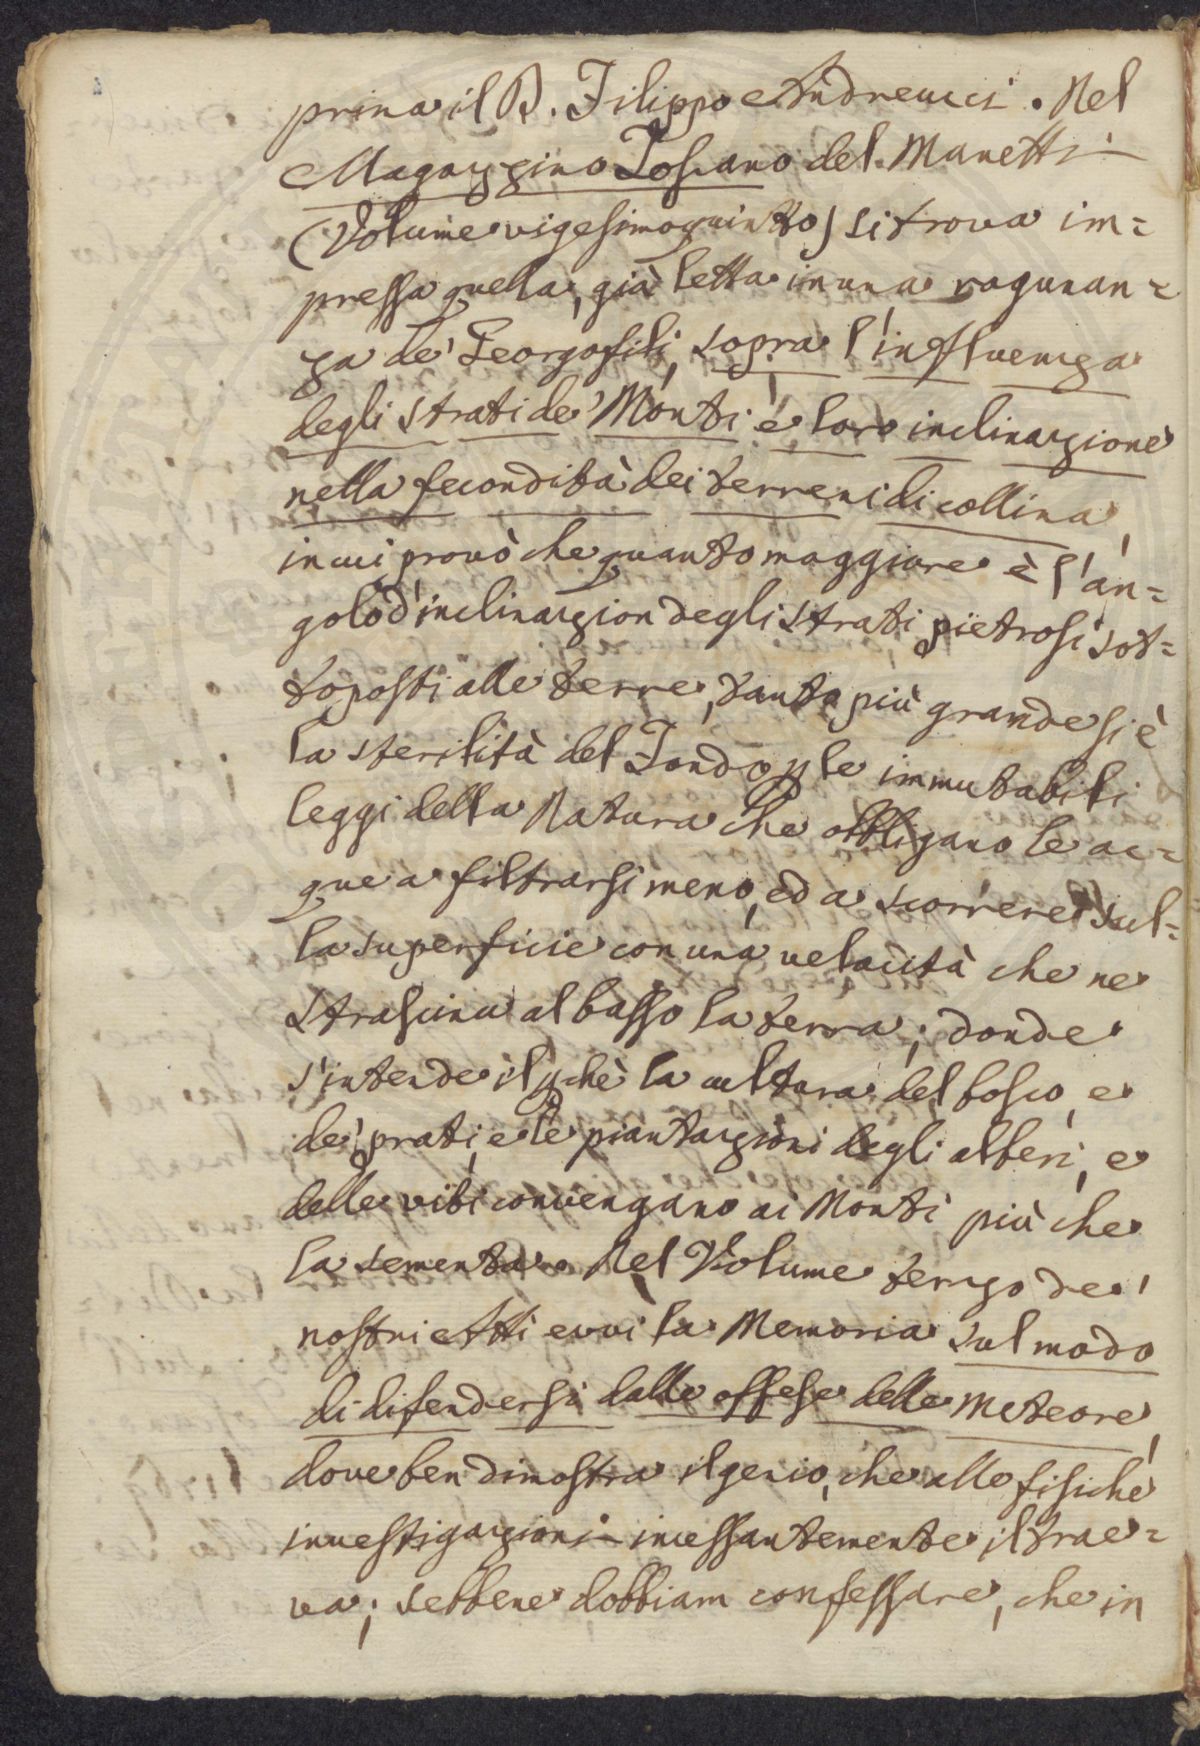 prima il D. Filippo Andreucci. Nel
Magazzino Toscano del Manetti
(Volume vigesimoquinto) si trova im=
pressa quella, già letta in una ragunan=
za de' Georgofili, sopra l'influenza
degli strati de' Monti, e loro inclinazione
nella fecondità dei terreni di collina,
in cui provò che quanto maggiore è l'an=
golo d'inclinazion degli strati pietrosi sot=
toposti alle terre, tanto più grande si è
la sterilità del Fondo p le immutabili
leggi della Natura che obbligano le ac=
que a filtrarsi meno, ed a scorrere sul=
la superficie con una velocità che ne
strascina al basso la terra; donde
s'intende il pchè la cultura del bosco, e
de' prati, e le piantazioni degli alberi, e
delle viti convengano ai Monti più che
la sementa. Nel Volume terzo de'
nostri Atti evvi la Memoria sul modo
di difendersi dalle offese delle meteore,
dove ben dimostra il genio, che alle fisiche
investigazioni incessantemente il trae=
va; sebbene dobbiam confessare, che in